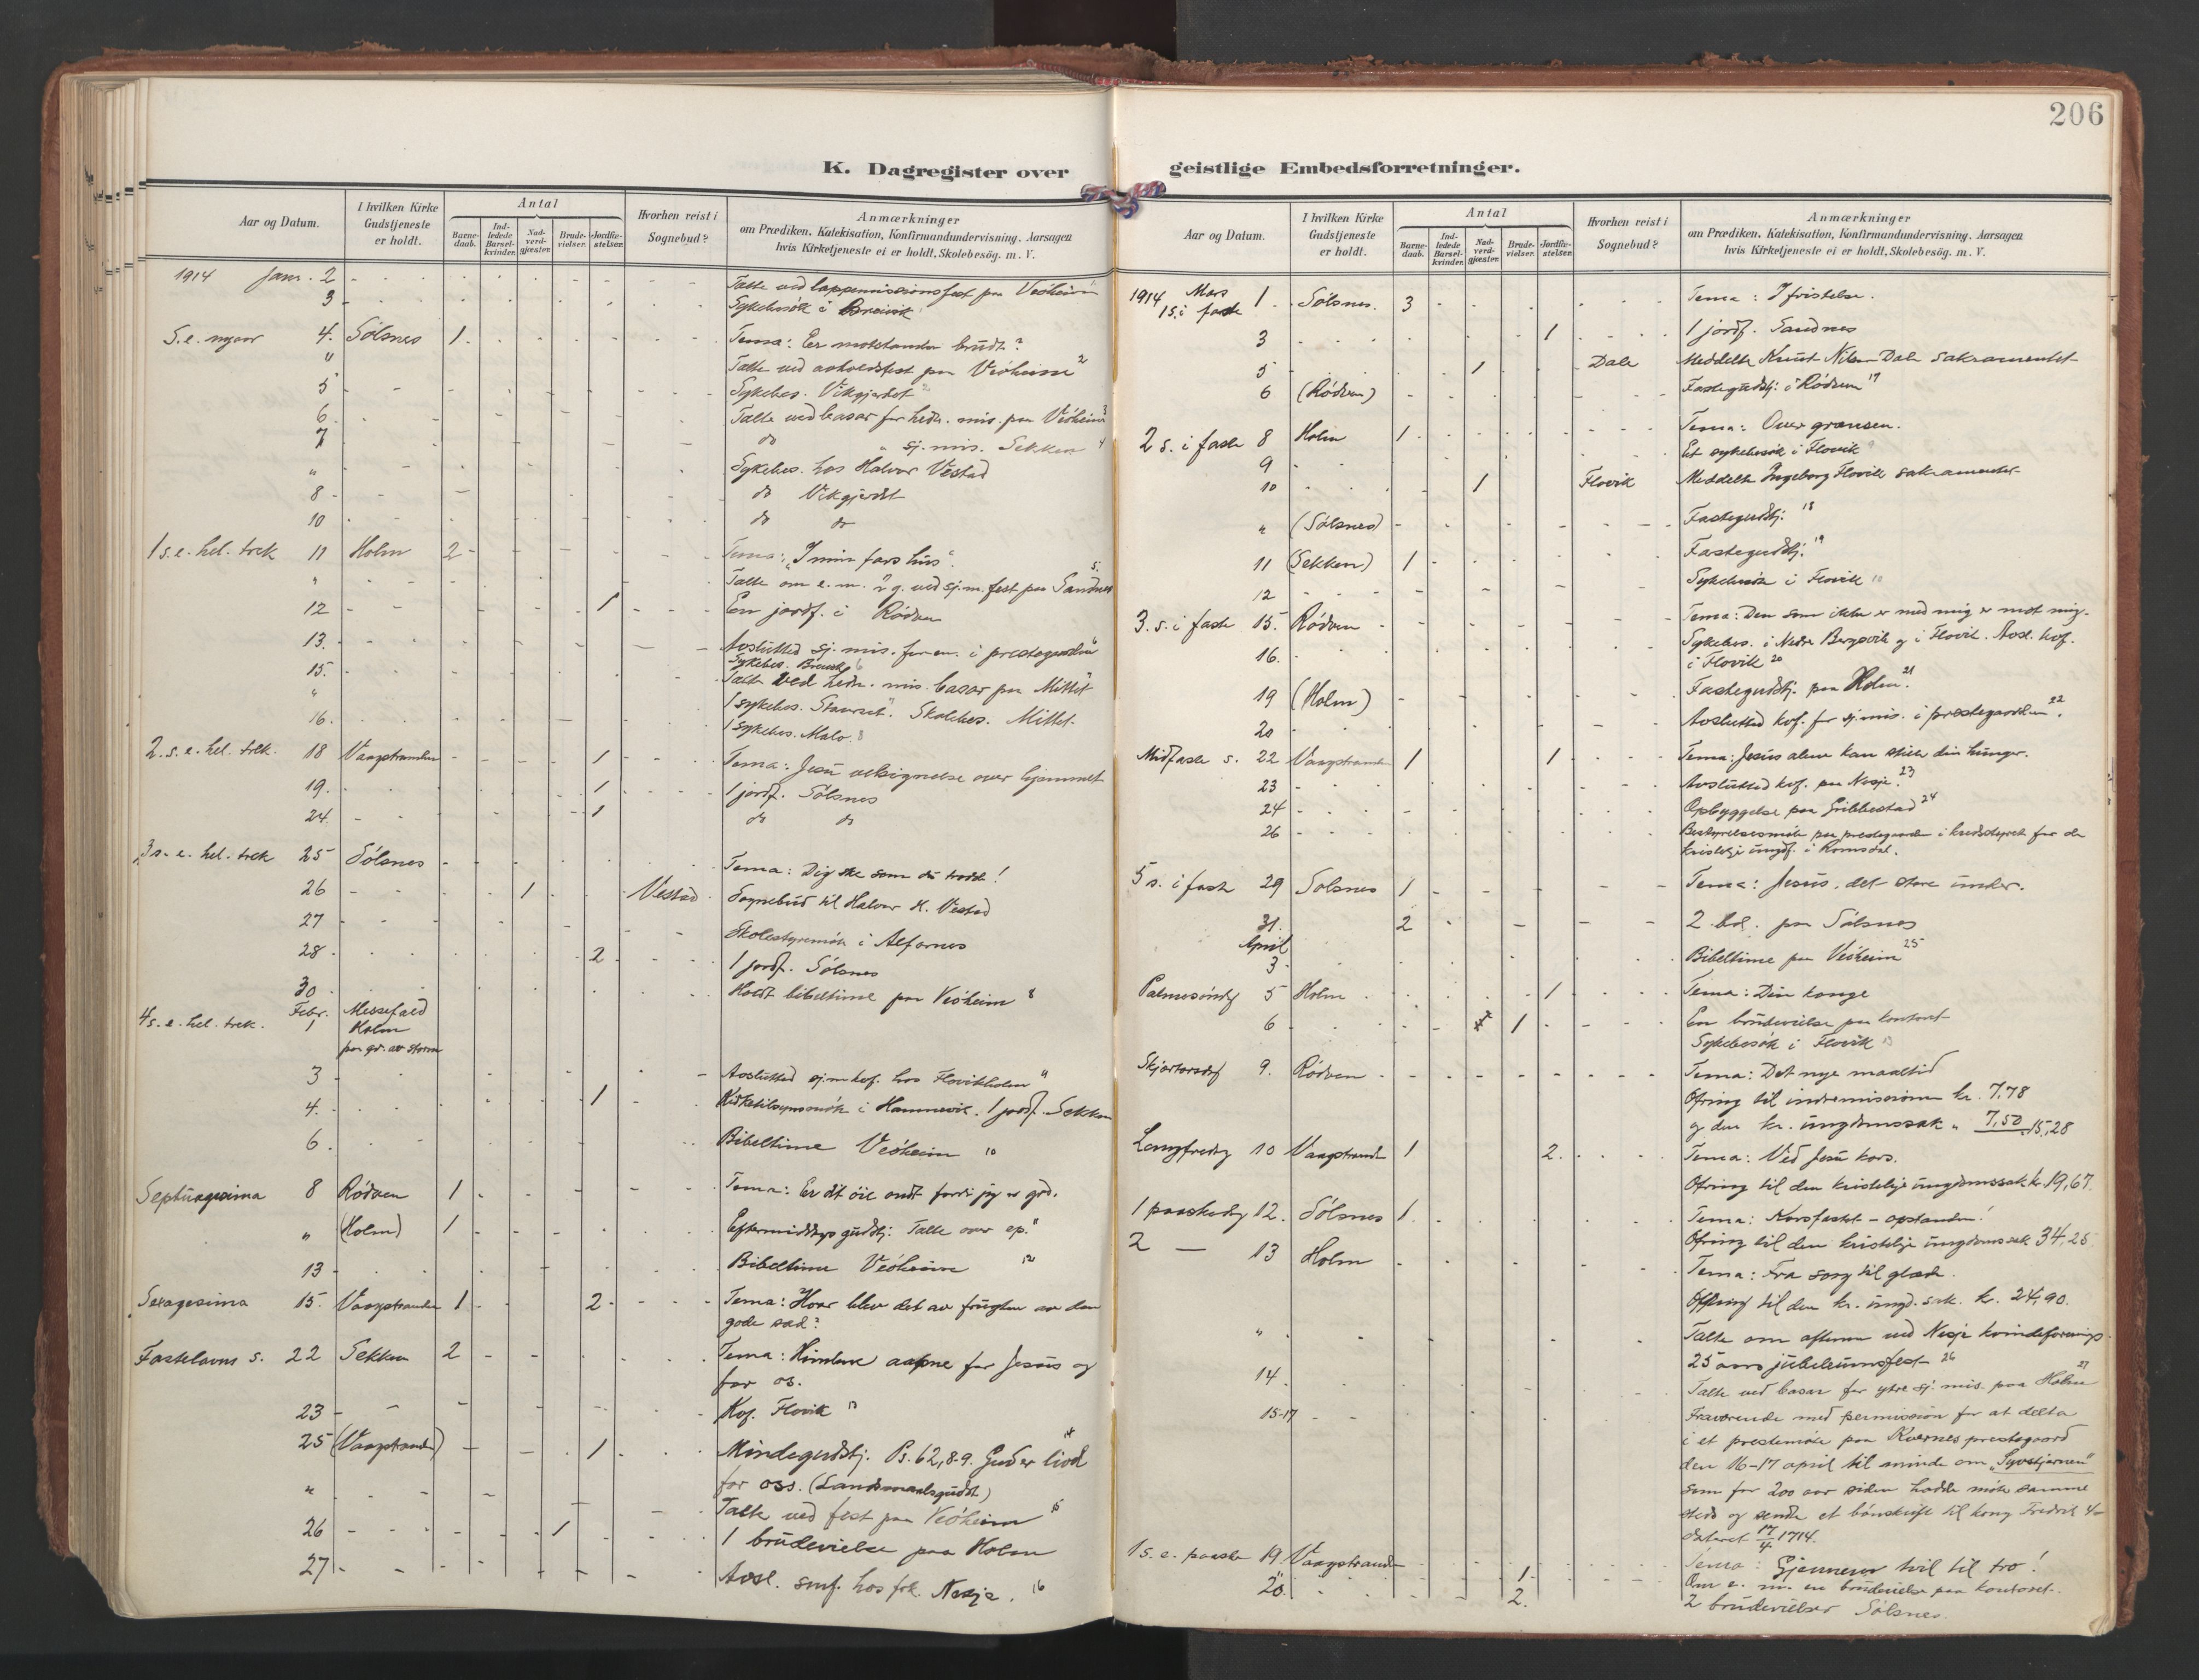 206
K. Dagregister over
Aar og Datum. I hvilken Kirke Gudstjeneste er holdt. Antal Barne-daab. Ind-ledede Barsel-kvinder. Nad-verd-gjæster. Brude-vielser. Jordfæ-stelser. Hvorhen reist i Sognebud? Anmærkninger om Prædiken. Katekisation, Konfirmandundervisning. Aarsagen hvis Kirketjeneste ei er holdt, Skolebesög. m. V.
1914 Janr. 2 Talte ved lappemissionsfest paa Veøheim 1
3 Sykebesøk i Breivik
S.e. nyaar 4. Sølsnes 1. Tema: Er motstanden brudt?
" Talte ved avholdsfest paa Veøheim 2
5 Sykebes. Vikgjerdet
6. Talte ved basar for hedn. mis. paa Veøheim 3
7 do " sj. mis. Sekken 4
" Sykebes. hos Halvor Vestad
8 do Vikgjerdet
10 do do
1 s. e. hel. trek 11 Holm 2 Tema: "I min fars hus".
" Talte om e. m. 2 g. ved sj. m. fest paa Sandnes 5.
12 1 En jordf. i Rødven
13. Avsluttet sj. mis. foren. i prestegaarden 6
15. Sykebes. Breivik 6
" Talte ved hedn. mis. basar paa Mittet
16. 1 sykebes. Stavset. Skolebes. Mittet.
1 sykebes. Malo. 8
2. s. e. hel. trek. 18 Vaagstranden 1 Tema: Jesu velsignelse over hjemmet
19. 1 1 jordf. Sølsnes
24. 1 do do
3 s. e. hel. trek 25 Sølsnes Tema: Dig ske som du trodde!
26 1 Vestad Sognebud til Halvor K. Vestad
27 Skolestyremøte i Alfarnes
28. 2 1 jordf. Sølsnes
30 Holdt bibeltime paa Veøheim 8
4 s. e. hel. trek. Febr. 1 Messefald Holm paa gr. av storm
3 Avsluttet sj. m. kof. hos Flovikholm
4. 1 Kirketilsynsmøte i Hammervik. 1 jordf. Sekken
6. Bibeltime Veøheim 10
Septuagesima 8 Rødven 1 Tema: Er dit øie ondt fordi jeg er god.
" (Holm) 1 Eftermiddags gudstj: Talte over ep.
13 Bibeltime Veøheim 12
Sexagesima 15. Vaagstranden 1 2 Tema: Hvor blev det av frugten av den
gode sæd?
Fastelavns s. 22 Sekken 2 Tema: Himlene aapne for Jesus og
for os.
23 Kof. Flovik 13
25 (Vaagstranden) 1 Mindegudstj. Ps. 62,8-9. Gud er livd 14
for oss. (Landsmaalsgudst)
" Talte ved fest paa Veøheim 15
26 1 1 brudevielse paa Holm
27 Avsl. smf. hos frk. Nesje. 16
geistlige Embedsforretninger.
Aar og Datum. I hvilken Kirke Gudstjeneste er holdt. Antal Barne-daab. Ind-ledede Barsel-kvinder. Nad-verd-gjæster. Brude-vielser. Jordfæ-stelser. Hvorhen reist i Sognebud? Anmærkninger om Prædiken. Katekisation, Konfirmandundervisning. Aarsagen hvis Kirketjeneste ei er holdt, Skolebesög. m. V.
1914 Mars 1 Sølsnes. 3 Tema: I fristelse.
1 s. i faste
3 1 1 jordf. Sandnes
5 1 Dale Meddelte Knut Nilsen Dale sakramentet
6 (Rødven) Fastegudstj. i Rødven 17
2 s. i faste 8 Holm 1 Tema: Over grænsen.
9 Et sykebesøk i Flovik 9
10 1 Flovik Meddelte Ingeborg Flovik sakramentet
" (Sølsnes) Fastegudstj. 18
11 (Sekken) 1 Fastegudstj. 19
12 Sykebesøk i Flovik 10
3. s. i faste 15. Rødven Tema: Den som ikke er med mig er mot mig.
16. Sykebes. i Nedre Bergsvik og i Flovik. Avsl. kof.
i Flovik 20
19 (Holm) Fastegudstj. paa Holm. 21
20 Avsluttet kof. for sj. mis. i prestegaarden 22.
Midfaste s. 22 Vaagstranden 1 1 Tema: Jesus alene kan stille din hunger.
23 Avsluttet kof. paa Nesje. 23
24 Opbyggelse paa Gribbestad 24
26 Bestyrelsesmøte paa prestegaarden i kredsstyret for de
kristelige ungdf. i Romsdal.
5 s. i faste 29 Sølsnes 1 Tema: Jesus, det store under.
31. 2 2 bd. paa Sølsnes
April
3 Bibeltime paa Veøheim 25
Palmesøndg 5 Holm 1 Tema: Din konge
6 1 En brudevielse paa kontoret
Sykebesøk i Flovik
Skjærtorsdg 9. Rødven Tema: Det nye maaltid
Ofring til indremissionen kr. 7,78
og den kr. ungdomssak " 7,50 15,28
Langfredag 10 Vaagstranden 1 2. Tema: Ved Jesu kors.
Ofring til den kristelige ungdomssak kr. 19,67.
1 paaskedag 12. Sølsnes 1. Tema: Korsfæstet - opstanden!
Ofring til den kristelige ungdomssak 34,25
2 — 13 Holm Tema: Fra sorg til glæde.
Offring til den kr. ungd. sak. kr. 24,90.
" Talte om aftenen ved Nesje kvindeforenings
25 aars jubeleumsfest 26
14. Talte ved basar for ytre sj. mis. paa Holm 27
15-17 Fraværende med permission for at delta
i et prestemøte paa Kvernes prestegaard
den 16-17 april til minde om "Syvstjernen"
som for 200 aar siden hadde møte samme
sted og sendte et bønskrift til kong Fredrik 4
dateret 17/4 1714.
1 s. e. paaske 19. Vaagstranden Tema: Gjennem tvil til tro!
" 1. Om e. m. en brudevielse paa kontoret.
20. 2. 2 brudevielser Sølsnes.